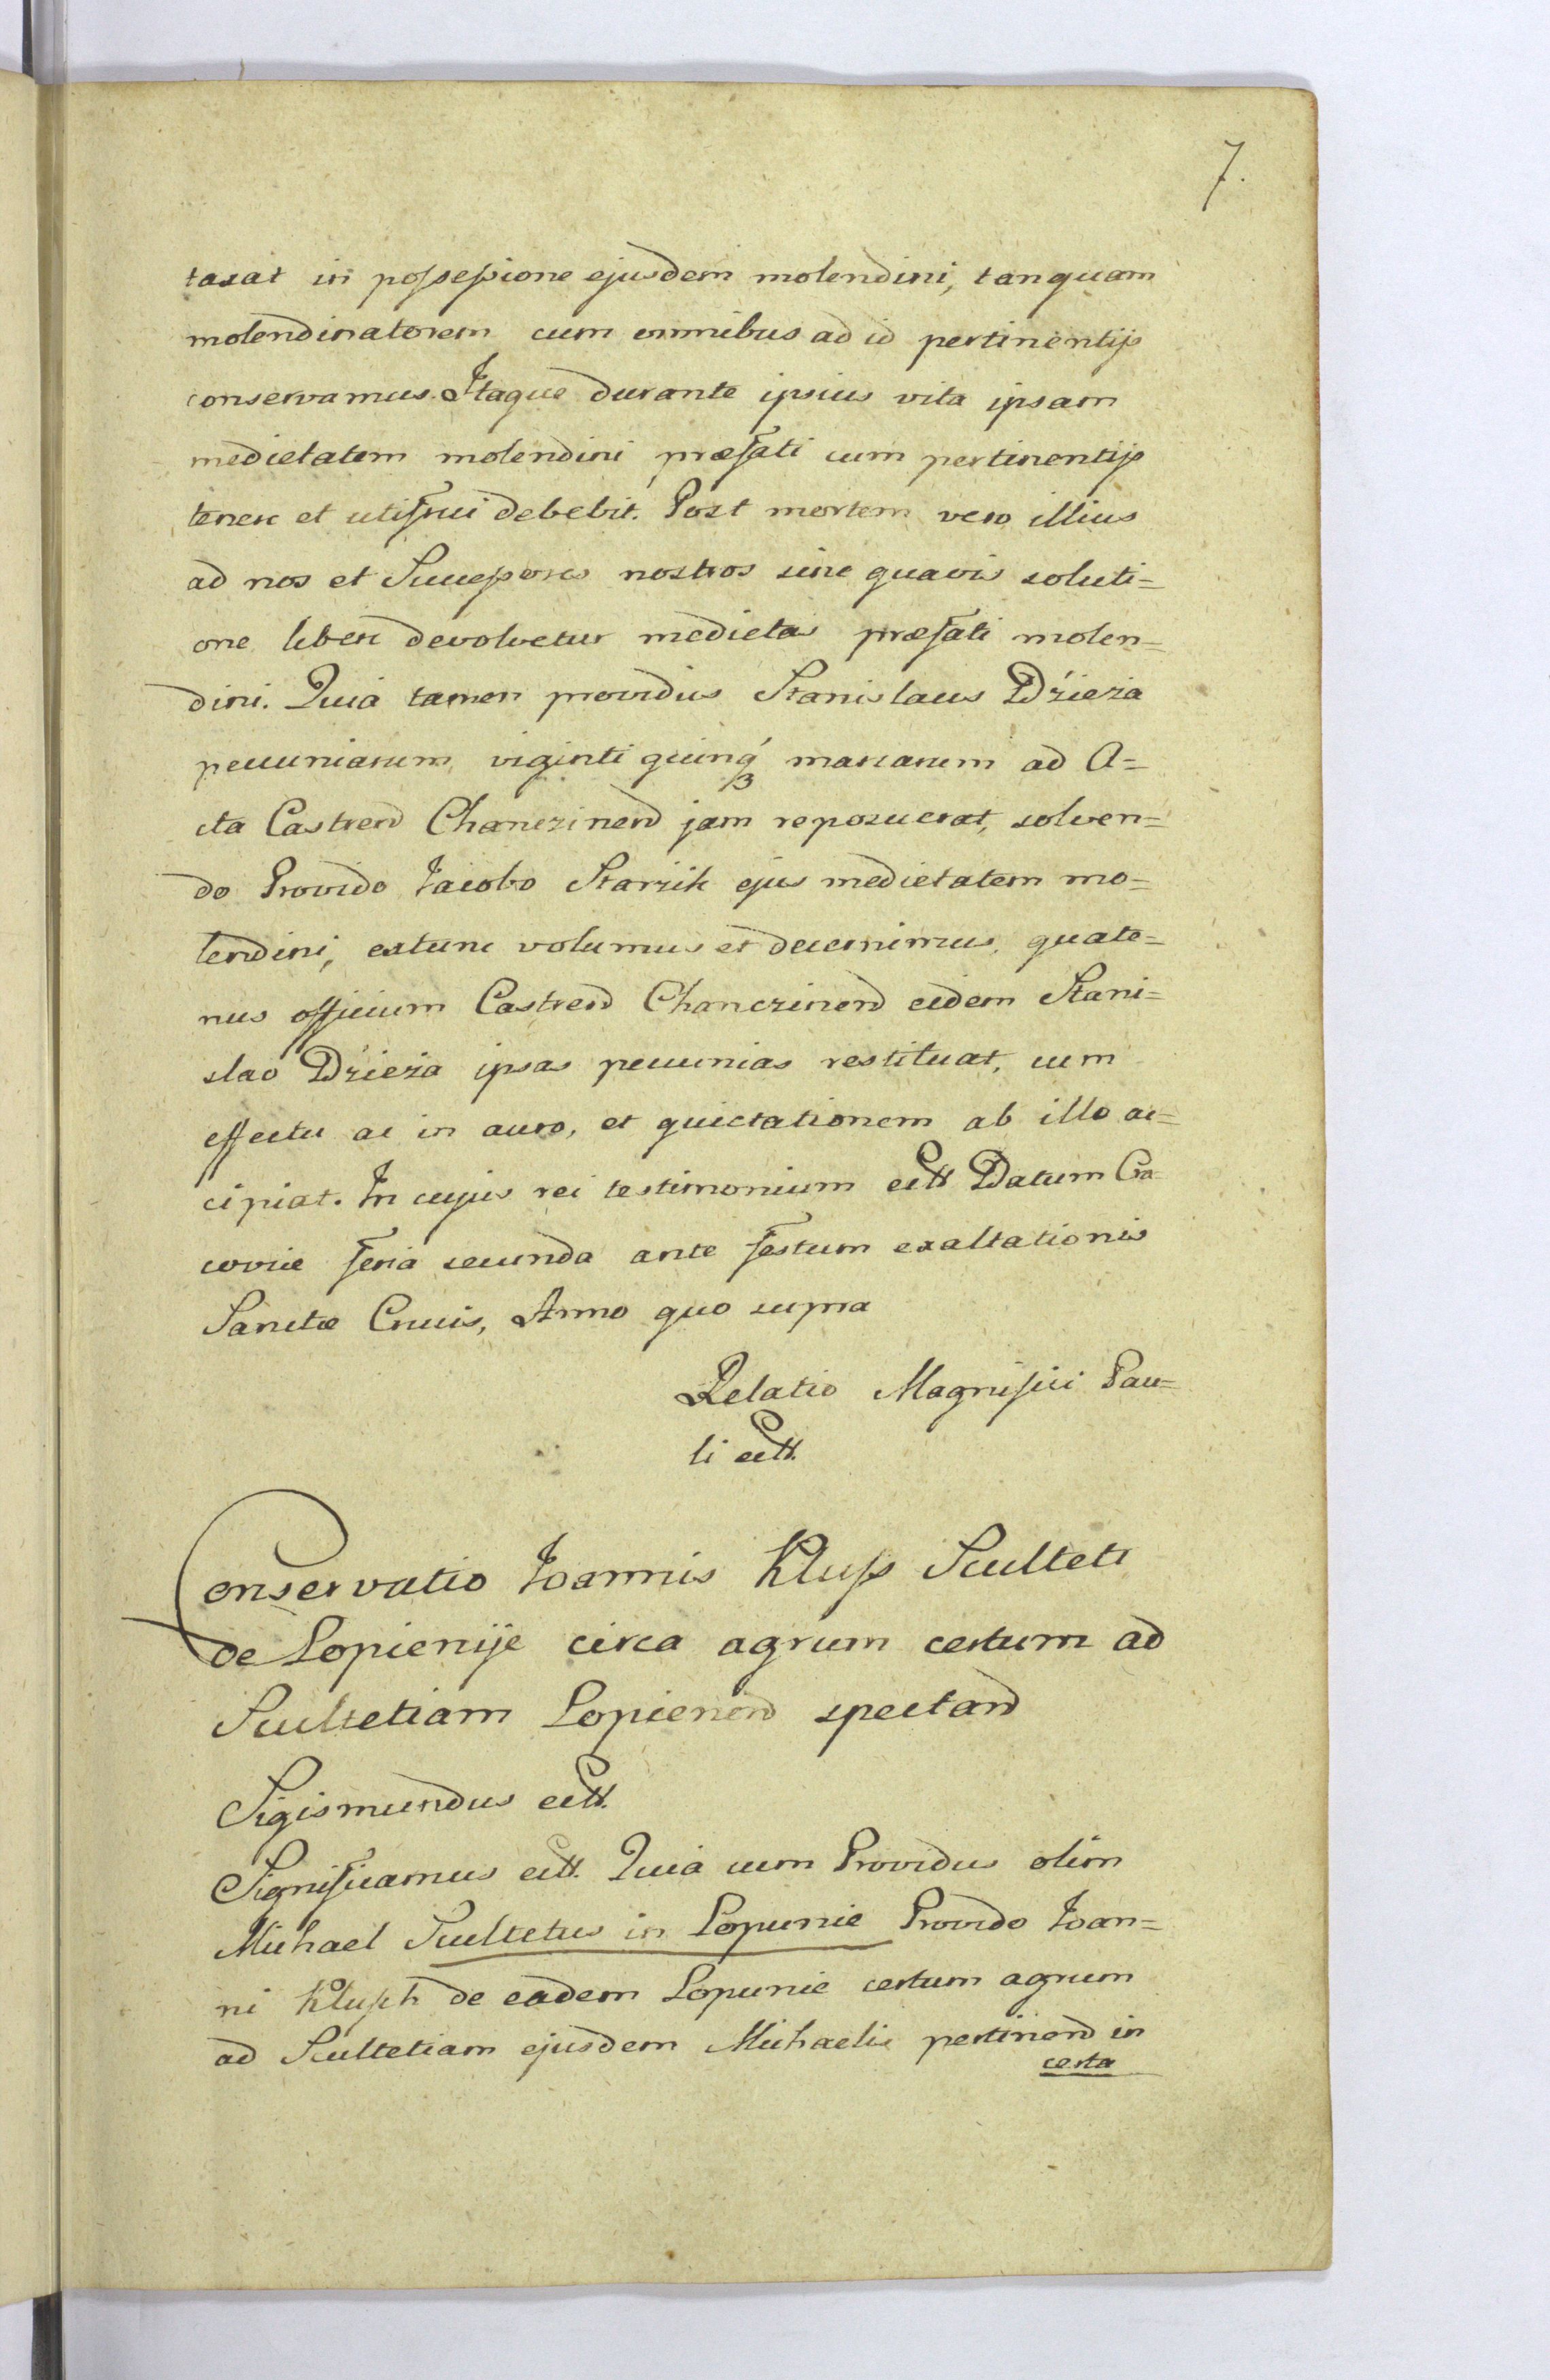 7.
taxat in possessione ejusdem molendini, tanquam
molendinatorem cum omnibus ad id pertinentijs
conservamus. Itaque durante ipsius vita ipsam
medietatem molendini præfati cum pertinentijs
tenere et utifrui debebit. Post mortem vero illius
ad nos et Successores nostros sine quavis soluti=
one libere devolvetur medietas præfati molen=
dini. Quia tamen providus Stanislaus Dzieża
pecuniarum viginti quinq3 marcarum ad A=
cta Castren Chanczinen jam reposuerat, solven=
do Provido Jacobo Starzik ejus medietatem mo=
lendini, extunc volumus et decernimus, quate=
nus officium Castren Chanczinen eidem Stani=
slao Dzieża ipsas pecunias restituat, cum
effectu ac in auro, et quietationem ab illo ac=
cipiat. In cujus rei testimonium ett Datum Cra
coviæ feria secunda ante festum exaltationis
Sanctæ Crucis, Anno quo supra
Relatio Magnifici Pau=
li ett.
Conservatio Joannis Kluss Sculteti
de Lopienije circa agrum certum ad
Scultetiam Lopienen spectan
Sigismundus ett.
Significamus ett. Quia cum Providus olim
Michael Scultetus in Lopunie Provido Joan=
ni Klusch de eadem Lopunie certum agrum
ad Scultetiam ejusdem Michaelis pertinen in
certa